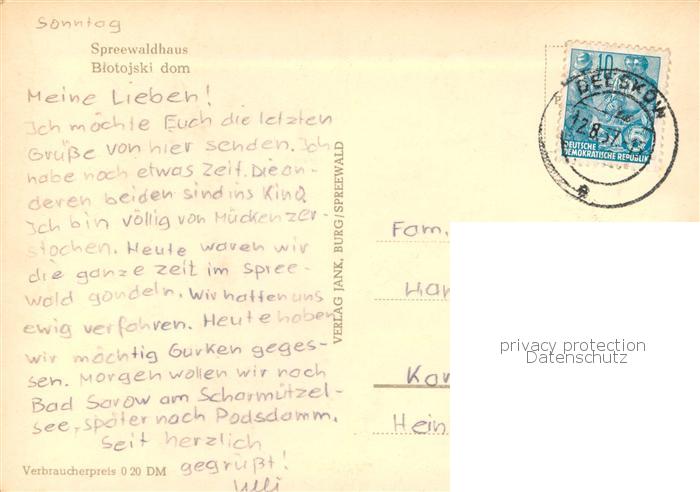 Sonntag
Spreewaldhaus
Błotojski dom
Meine Lieben!
Ich möchte Euch die letzten
Grüße von hier senden. Ich
habe noch etwas Zeit. Die an-
deren beiden sind ins Kino.
Ich bin völlig von Mücken zer-
stochen. Heute waren wir
die ganze Zeit im Spree-
wald gondeln. Wir hatten uns
ewig verfahren. Heute haben
wir mächtig Gurken geges-
sen. Morgen wollen wir noch
Bad Sarow am Scharmützel-
see, später nach Podsdamm.
Seit herzlich
gegrüßt!
Ulli
Verbraucherpreis 0 20 DM
VERLAG JANK, BURG/SPREEWALD
10
BEESKOW
12.8.57
DEUTSCHE
DEMOKRATISCHE REPUBLIK
Fam.
Kar
Hein
privacy protection
Datenschutz